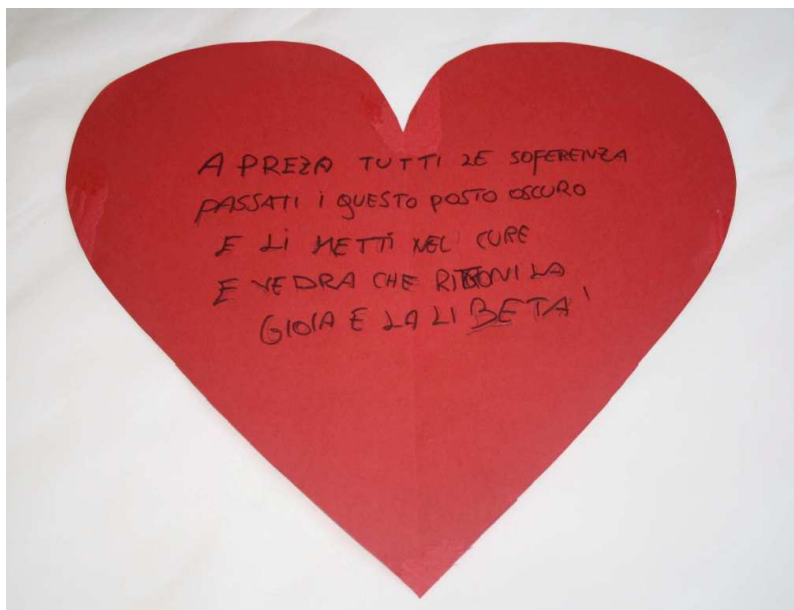 A PREZA TUTTI LE SOFERENZA
PASSATI i QUESTO POSTO OSCURO
E LI METTI NEL CURE
E VEDRA CHE RITONI LA
GIOIA E LA LI BETA'